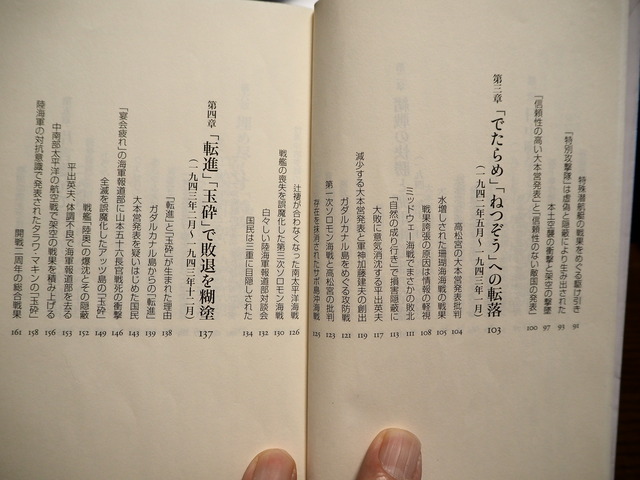 特殊潜航艇の戦果をめぐる駆け引き 91
「特別攻撃隊」は虚偽と隠蔽により生み出された 93
本土空襲の衝撃と架空の撃墜 97
「信頼性の高い大本営発表」と「信頼性のない敵国の発表」 100
第三章 「でたらめ」「ねつぞう」への転落 103
(一九四二年五月〜一九四三年一月)
高松宮の大本営発表批判 104
水増しされた珊瑚海海戦の戦果 105
戦果誇張の原因は情報の軽視 108
ミッドウェー海戦でまさかの敗北 111
「自然の成り行き」で損害隠蔽に 113
大敗に意気消沈する平出英夫 117
減少する大本営発表と軍神加藤建夫の創出 119
ガダルカナル島をめぐる攻防戦 121
第一次ソロモン海戦と高松宮の批判 123
存在を抹消されたサボ島沖海戦 125
辻褄が合わなくなった南太平洋海戦 126
戦艦の喪失を誤魔化した第三次ソロモン海戦 130
白々しい陸海軍報道部対談会 132
国民は三重に目隠しされた 134
第四章 「転進」「玉砕」で敗退を糊塗 137
(一九四三年二月〜一九四三年十二月)
「転進」と「玉砕」が生まれた理由 138
ガダルカナル島からの「転進」 139
大本営発表を疑いはじめた国民 143
「宴会疲れ」の海軍報道部に山本五十六長官戦死の衝撃 146
全滅を誤魔化したアッツ島の「玉砕」 149
戦艦「陸奥」の爆沈とその隠蔽 152
平出英夫、体調不良で海軍報道部を去る 153
中南部太平洋の航空戦で架空の戦果を積み上げる 156
陸海軍の対抗意識で発表されたタラワ・マキンの「玉砕」 158
開戦二周年の総合戦果 161